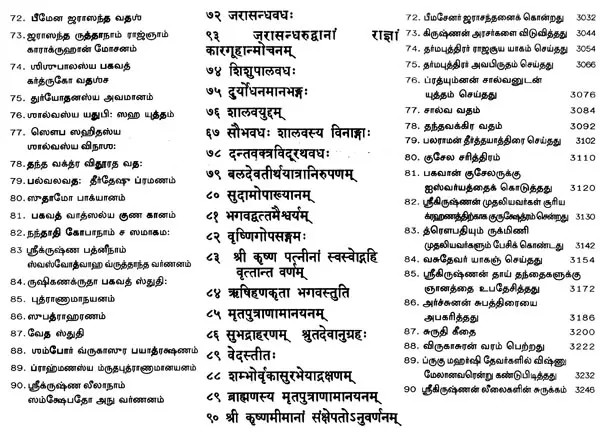 72. பீமேன ஜராஸந்த வதஸ்
73. ஜராஸந்த ருத்தாநாம் ராஜ்ஞாம்
காராக்ருஹான் மோசனம்
74. ஶிஶுபாலஸ்ய பகவத்
கர்த்ருகோ வதஸ்ச
75. துர்யோதனஸ்ய அவமானம்
76. ஸால்வஸ்ய யதுபி: ஸஹ யுத்தம்
77. ஸௌப ஸஹிதஸ்ய
ஸால்வஸ்ய விநாஸ:
78. தந்த வக்த்ர விதூரத வத:
79. பல்வலவத: தீர்தேஷு ப்ரமணம்
80. ஸுதாமோ பாக்யானம்
81. பகவத் வாத்ஸல்ய குண கானம்
82. நந்தாதி கோபாநாம் ச ஸமாகம:
83 ஸ்ரீக்ருஷ்ண பத்னீநாம்
ஸ்வஸ்வோத்வாஹ வ்ருத்தாந்த வர்ணனம்
84. ருஷிகணக்ருதா பகவத் ஸ்துதி:
85. புத்ராணாமாநயனம்
86. ஸுபத்ராஹரணம்
87. வேத ஸ்துதி
88. ஶம்போர் வ்ருகாஸுர பயாத்ரக்ஷணம்
89. ப்ராஹ்மணஸ்ய ம்ருதபுத்ராணாமானயனம்
90. ஸ்ரீக்ருஷ்ண லீலாநாம்
ஸம்க்ஷேபதோ அநு வர்ணனம்
७२ जरासन्धवधः
९३ जरासन्धरुद्वानां राज्ञां
कारागृहान्मोचनम्
७४ शिशुपालवधः
७५ दुर्योधनमानभङ्गः
७६ शालवयुद्दम्
६७ सौभवधः शालवस्य विनाङ्गाः
७८ दन्तवक्त्रविदूरथवधः
७९ बलदेवतीर्थयात्रानिरुपणम्
८० सुदामोपाख्यानम्
८१ भगवद्वतमैश्वर्यम्
८२ वृष्णिगोपसङ्गमः
८३ श्री कृष्ण पत्नीनां स्वस्वोद्रहि
वृत्तान्त वर्णम्
८४ ऋषिहणकृता भगवस्तुति
८५ मृतपुत्राणामानयनम्
८६ सुभद्राहरणम् श्रुतदेवानुग्रहः
८९ वेदस्तीतः
८८ शम्भोर्वृकासुरभेयाद्रक्षणम्
८९ ब्राह्मणस्य मृतपुत्राणामानयनम्
९० श्री कृष्णमीमानां संक्षेपतोऽनुवर्णनम्
72. பீமசேனர் ஜராசந்தனைக் கொன்றது 3032
73. கிருஷ்ணன் அரசர்களை விடுவித்தது 3044
74. தர்மபுத்திரர் ராஜசூய யாகம் செய்தது 3054
75. தர்மபுத்திரர் அவபிருதம் செய்தது 3066
76. ப்ரத்யும்னன் சால்வனுடன்
யுத்தம் செய்தது 3076
77. சால்வ வதம் 3084
78. தந்தவக்கிர வதம் 3092
79. பலராமன் தீர்த்தயாத்திரை செய்தது 3102
80. குசேல சரித்திரம் 3110
81. பகவான் குசேலருக்கு
ஐஸ்வர்யத்தைக் கொடுத்தது 3120
82. ஸ்ரீகிருஷ்ணன் முதலியவர்கள் சூரிய
க்ரஹணத்திற்காக குருக்ஷேத்ரம் சென்றது 3130
83. த்ரௌபதியும் ருக்மிணி
முதலியவர்களும் பேசிக் கொண்டது 3142
84. வசுதேவர் யாகஞ் செய்தது 3154
85. ஸ்ரீகிருஷ்ணன் தாய் தந்தைகளுக்கு
ஞானத்தை உபதேசித்தது 3172
86. அர்ச்சுனன் சுபத்திரையை
அபகரித்தது 3186
87. சுருதி கீதை 3200
88. விருகாசுரன் வரம் பெற்றது 3222
89. ப்ருகு மஹர்ஷி தேவர்களில் விஷ்ணு
மேலானவரென்று கண்டுபிடித்தது 3232
90 ஸ்ரீகிருஷ்ணன் லீலைகளின் சுருக்கம் 3246